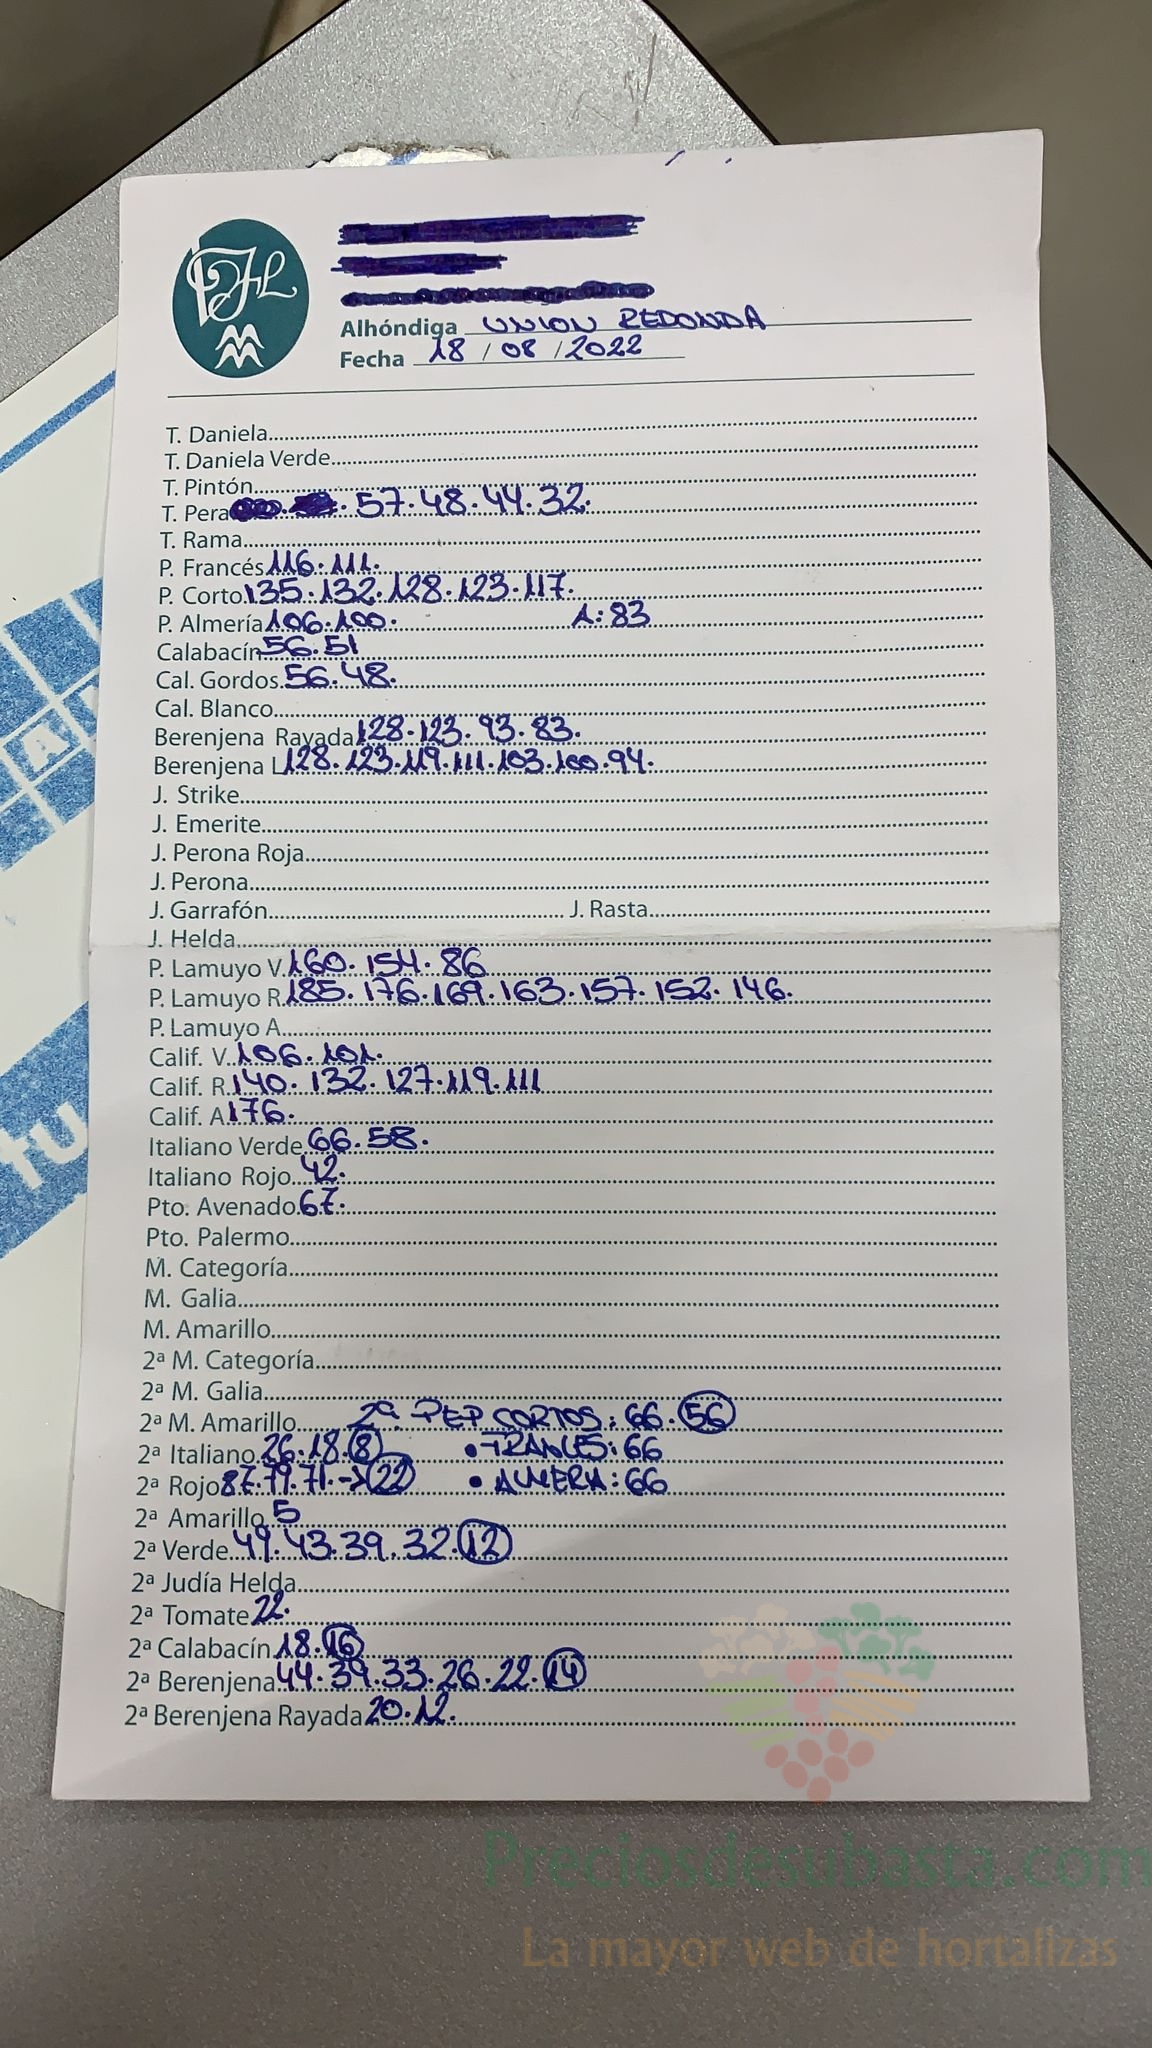 Alhóndiga UNION REDONDA
Fecha 18 / 08 / 2022
T. Daniela
T. Daniela Verde
T. Pintón
T. Pera 57.48.44.32.
T. Rama
P. Francés 116.111.
P. Corto 135.132.128.123.117.
P. Almería 106.100. A:83
Calabacín 56.51
Cal. Gordos 56.48.
Cal. Blanco
Berenjena Rayada 128.123.93.83.
Berenjena L 128.123.119.111.103.100.94.
J. Strike
J. Emerite
J. Perona Roja
J. Perona
J. Garrafón J. Rasta
J. Helda
P. Lamuyo V. 160.154.86
P. Lamuyo R. 185.176.169.163.157.152.146.
P. Lamuyo A
Calif. V. 106.101.
Calif. R. 140.132.127.119.111
Calif. A 176.
Italiano Verde 66.58.
Italiano Rojo 42.
Pto. Avenado 67.
Pto. Palermo
M. Categoría
M. Galia
M. Amarillo
2ª M. Categoría
2ª M. Galia
2ª M. Amarillo 2ª PEP CORTOS: 66.56
2ª Italiano 26.18.8 • FRANCES: 66
2ª Rojo 87.79.71.→22 • ALMERIA: 66
2ª Amarillo 5
2ª Verde 49.43.39.32.12
2ª Judía Helda
2ª Tomate 22.
2ª Calabacín 18.16
2ª Berenjena 44.39.33.26.22.14
2ª Berenjena Rayada 20.12.
Preciosdesubasta.com
La mayor web de hortalizas
tu